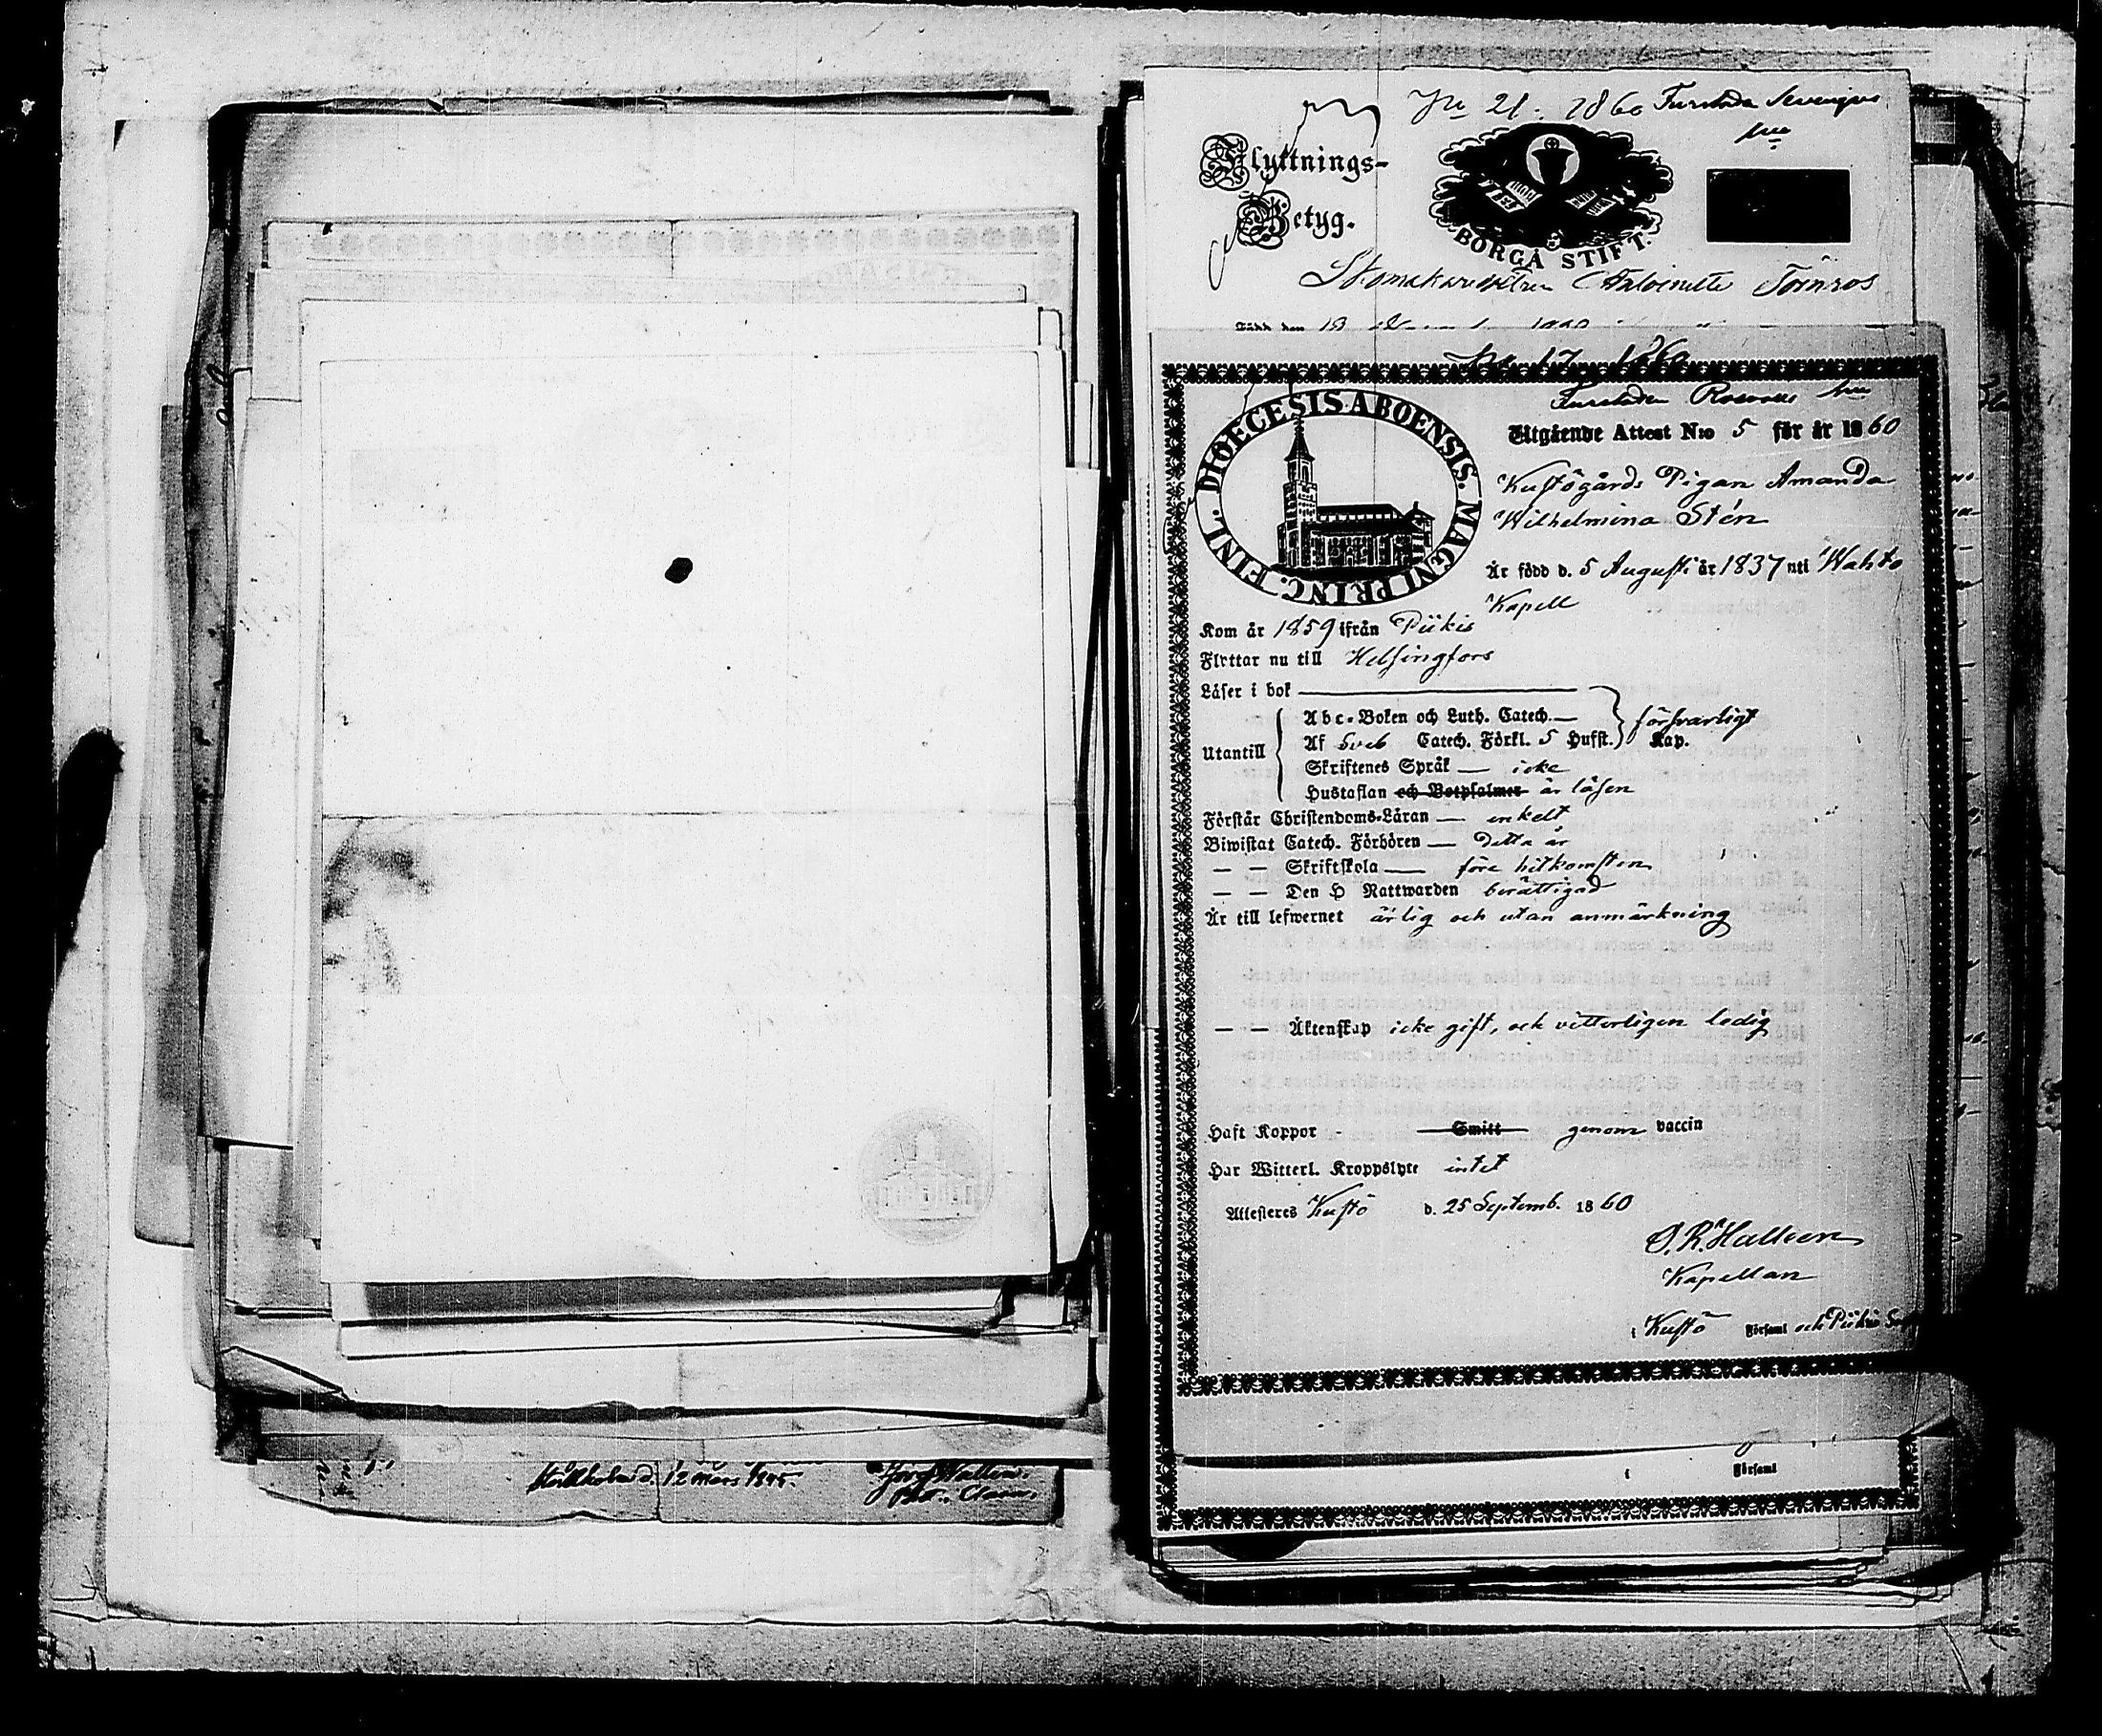 Stockholm d. 12 Mars 1845.
No 21. 1860
Flyttnings-
Betyg.
BORGÅ STIFT.
Antoinette Törnros
No 17 1860
DIOECESIS ABOENSIS. MAGNI PRINC. FINL.
Utgående Attest N:o 5 för år 1860
Kustögårds Pigan Amanda
Wilhelmina Stén
Är född d. 5 Augusti år 1837 uti Wahto
Kapell
Kom år 1859 ifrån Piikis
Flyttar nu till Helsingfors
Läser i bok
Abc-Boken och Luth. Catech. försvarligt
Utantill
Af Sveb Catech. Förkl. 5 Hufst. Kap.
Skriftenes Språk — icke
Hustaflan och Botpsalmer är läsen
Förstår Christendoms-Läran — enkelt
Biwistat Catech. Förhören — detta år
— — Skriftskola — före hitkomsten
— — Den H Nattwarden berättigad
Är till lefwernet ärlig och utan anmärkning
— — Äktenskap icke gift, och vitterligen ledig
Haft Koppor - Smitt genom vaccin
Har Witterl. Kroppslyte intet
Attesteres Kustö d. 25 Septemb. 1860
Kapellan
i Kustö Församl och Piikis
i Församl